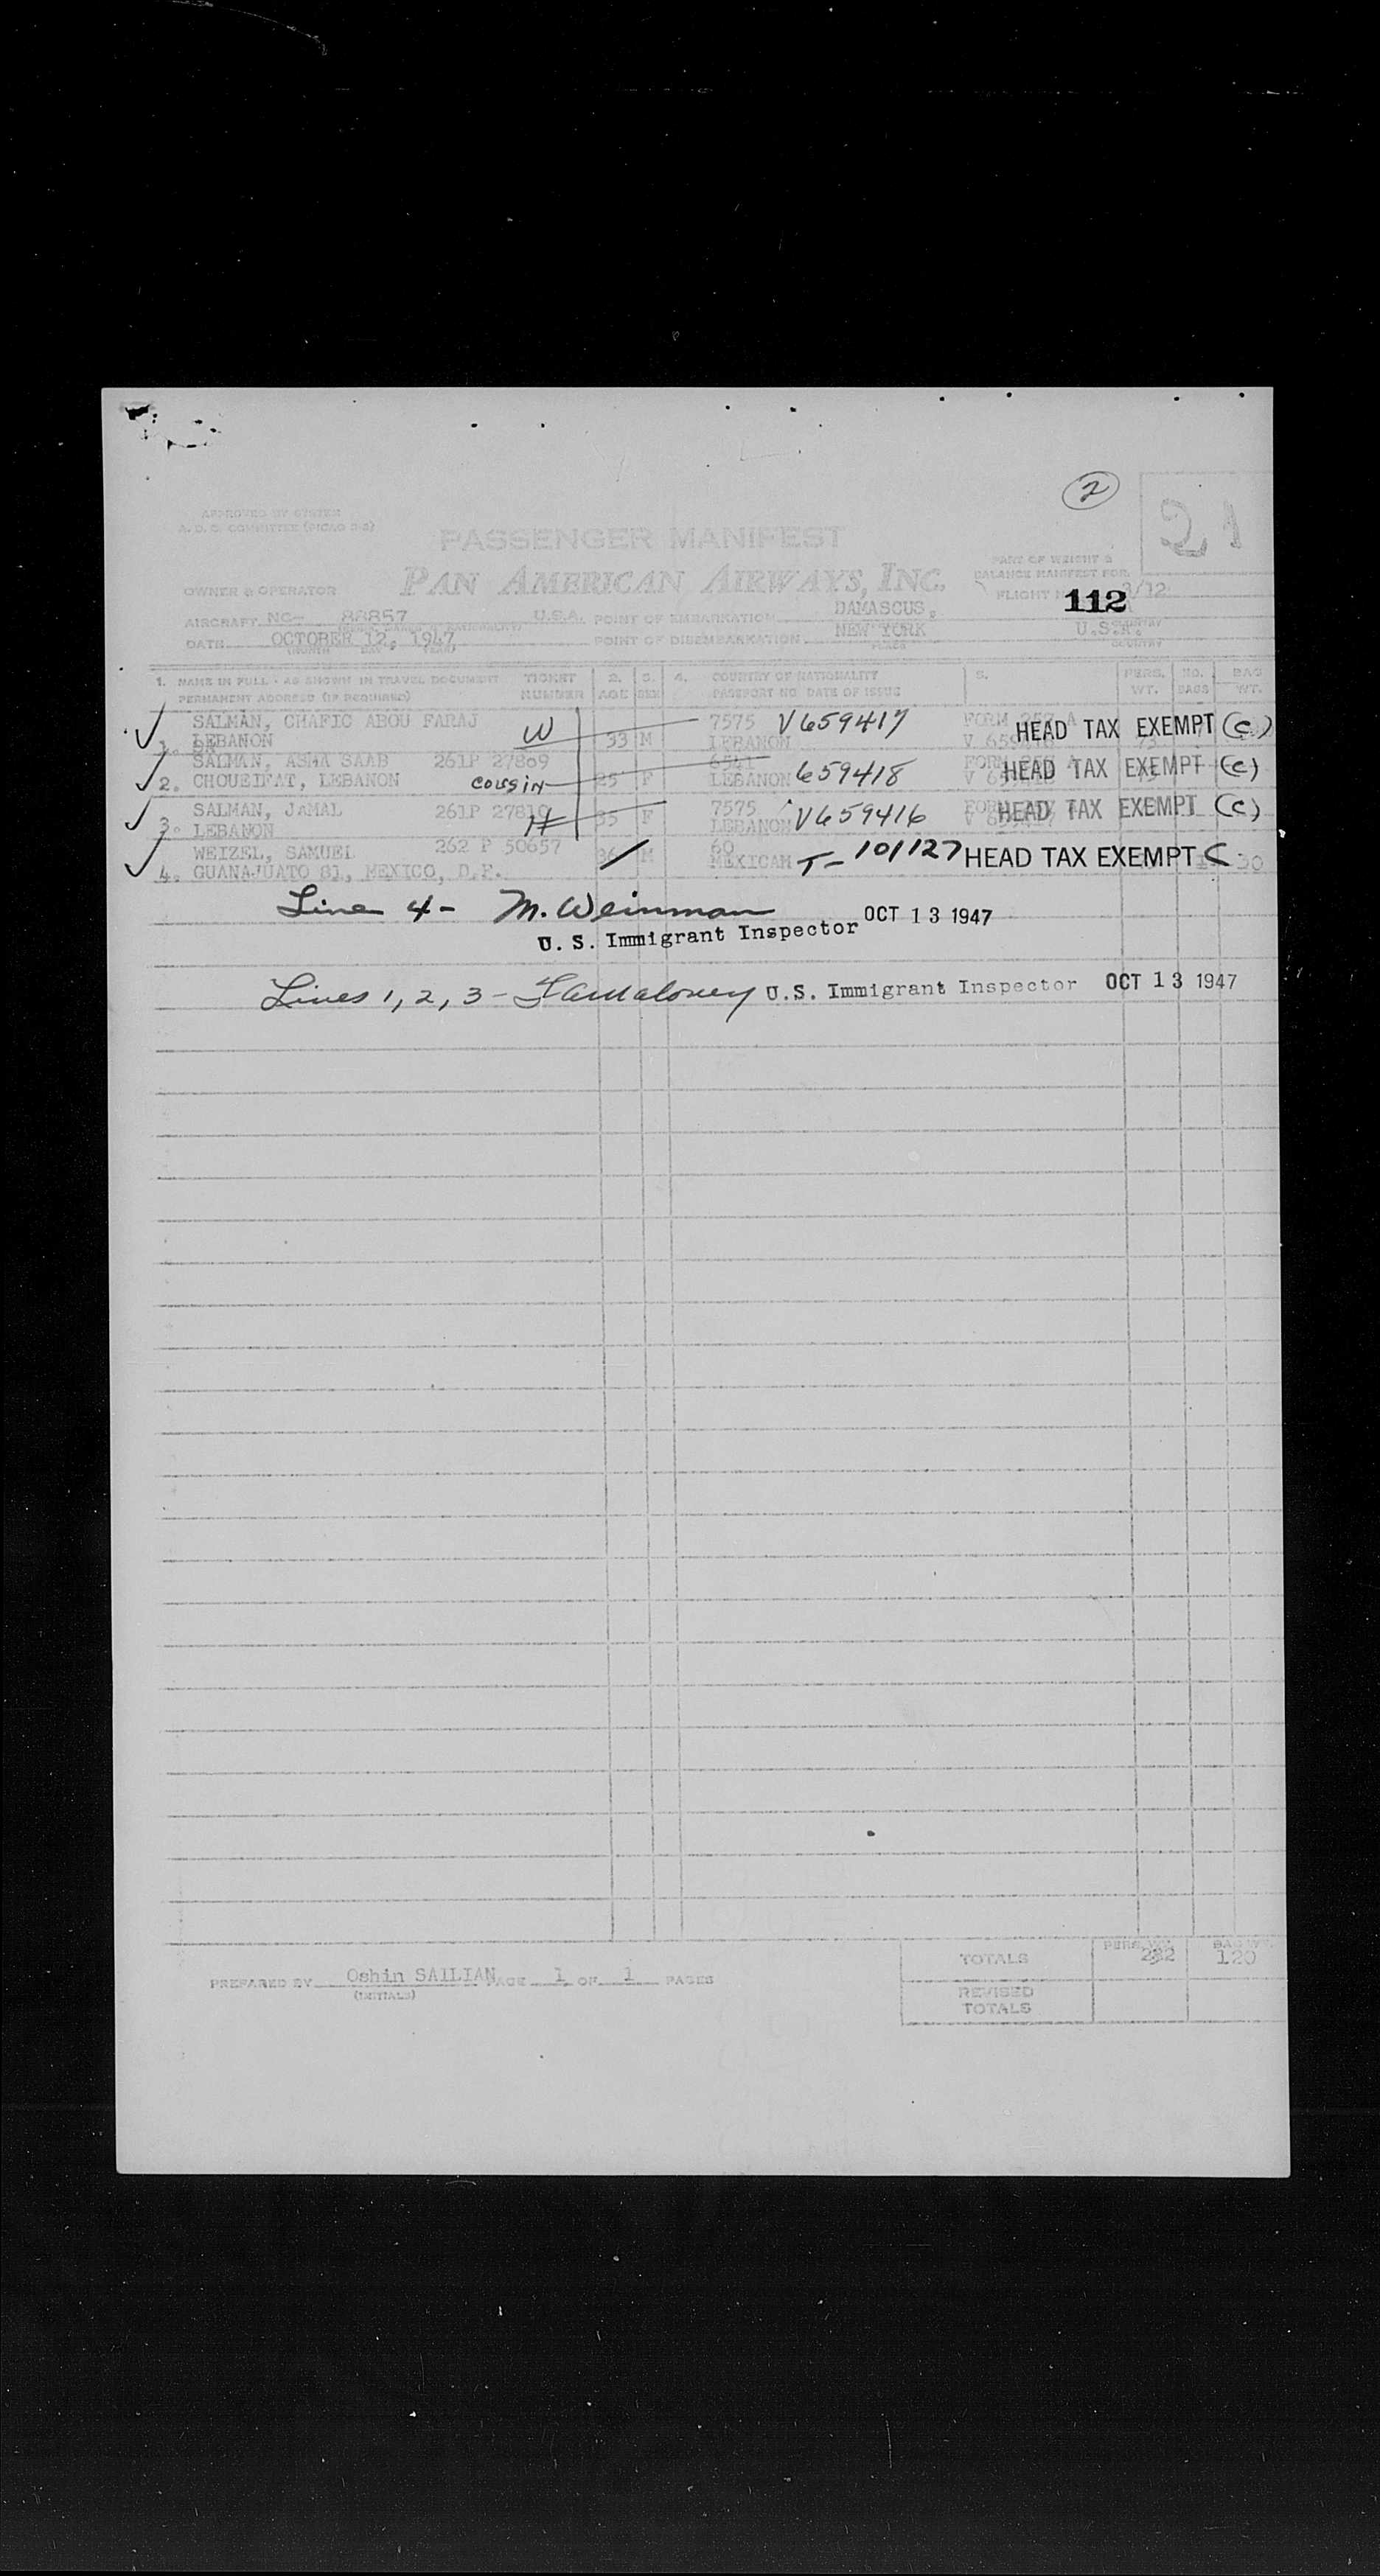 2
21
APPROVED BY SYSTEM
A. O. C. COMMITTEE (PICAO 2-2)
PASSENGER MANIFEST
PAN AMERICAN AIRWAYS, INC.
PART OF WEIGHT &
BALANCE MANIFEST FOR
OWNER & OPERATOR
FLIGHT 112 /12
AIRCRAFT NC- 88857 U.S.A. POINT OF EMBARKATION DAMASCUS,
DATE OCTOBER 12, 1947 POINT OF DISEMBARKATION NEW YORK U.S.A.
(MONTH DAY YEAR) PLACE COUNTRY
1. NAME IN FULL - AS SHOWN IN TRAVEL DOCUMENT TICKET 2. 3. 4. COUNTRY OF NATIONALITY 5. PERS. NO. BAG
PERMANENT ADDRESS (IF REQUIRED) NUMBER AGE SEX PASSPORT NO DATE OF ISSUE WT. BAGS WT.
SALMAN, CHAFIC ABOU FARAJ W 7575 V659417 HEAD TAX EXEMPT (C)
1. LEBANON 33 M LEBANON
SALMAN, ASMA SAAB 261P 27809
2. CHOUEIFAT, LEBANON cousin 25 F LEBANON 659418 HEAD TAX EXEMPT (C)
SALMAN, JAMAL 261P 27810 H 7575 V659416 HEAD TAX EXEMPT (C)
3. LEBANON 35 F LEBANON
WEIZEL, SAMUEL 262 P 50657 60 T-101127 HEAD TAX EXEMPT C
4. GUANAJUATO 81, MEXICO, D.F. 36 M MEXICAN 30
Line 4- M. Weinman OCT 13 1947
U. S. Immigrant Inspector
Lines 1, 2, 3 - Maloney U.S. Immigrant Inspector OCT 13 1947
TOTALS 232 120
PREPARED BY Oshin SAILIAN PAGE 1 OF 1 PAGES
(INITIALS)
REVISED
TOTALS